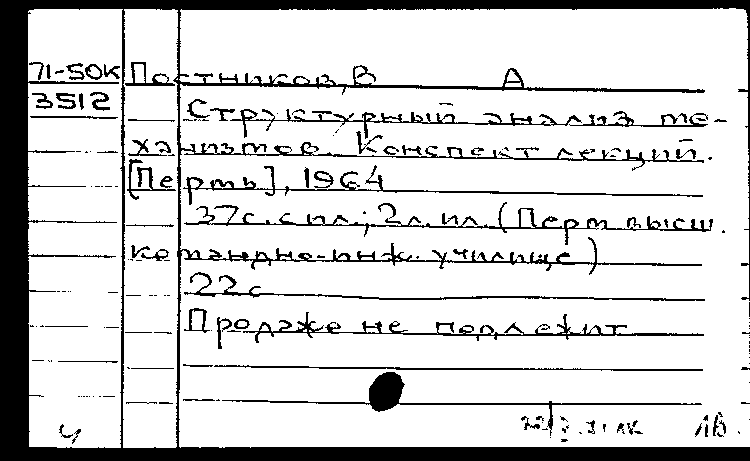 71-50К Постников, В А
3512 Структурный анализ ме-
ханизмов. Конспект лекций.
[Пермь], 1964
37с. с ил.; 2л. ил. (Перм высш.
командно-инж. училище)
22с
Продаже не подлежит
ЛВ.